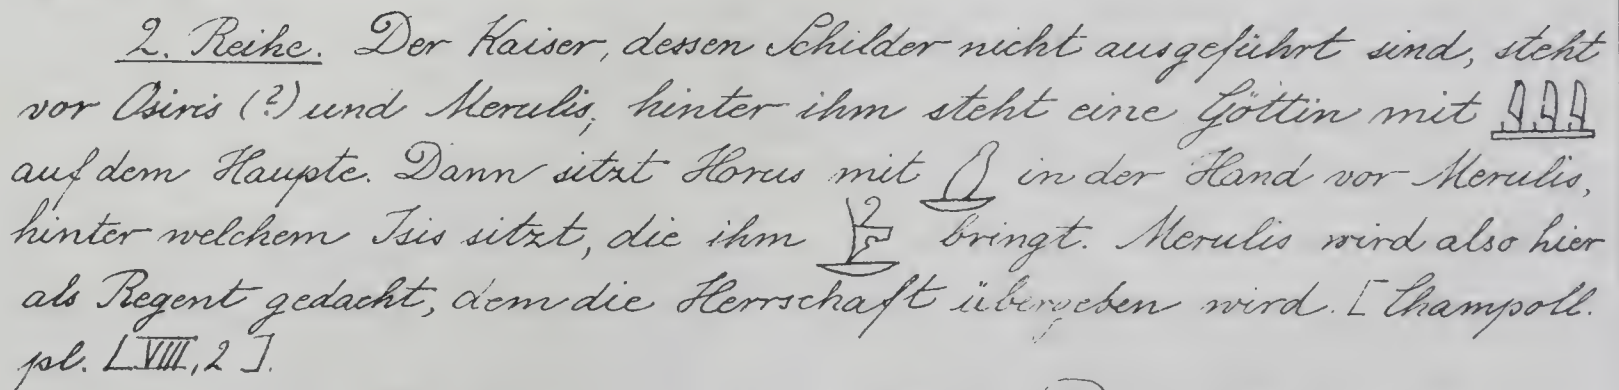 2. Reihe. Der Kaiser, dessen Schilder nicht ausgeführt sind, steht
vor Osiris (?) und Merulis, hinter ihm steht eine Göttin mit
auf dem Haupte. Dann sitzt Horus mit in der Hand vor Merulis,
hinter welchem Isis sitzt, die ihm bringt. Merulis wird also hier
als Regent gedacht, dem die Herrschaft übergeben wird. [Champoll.
pl. LVIII, 2].